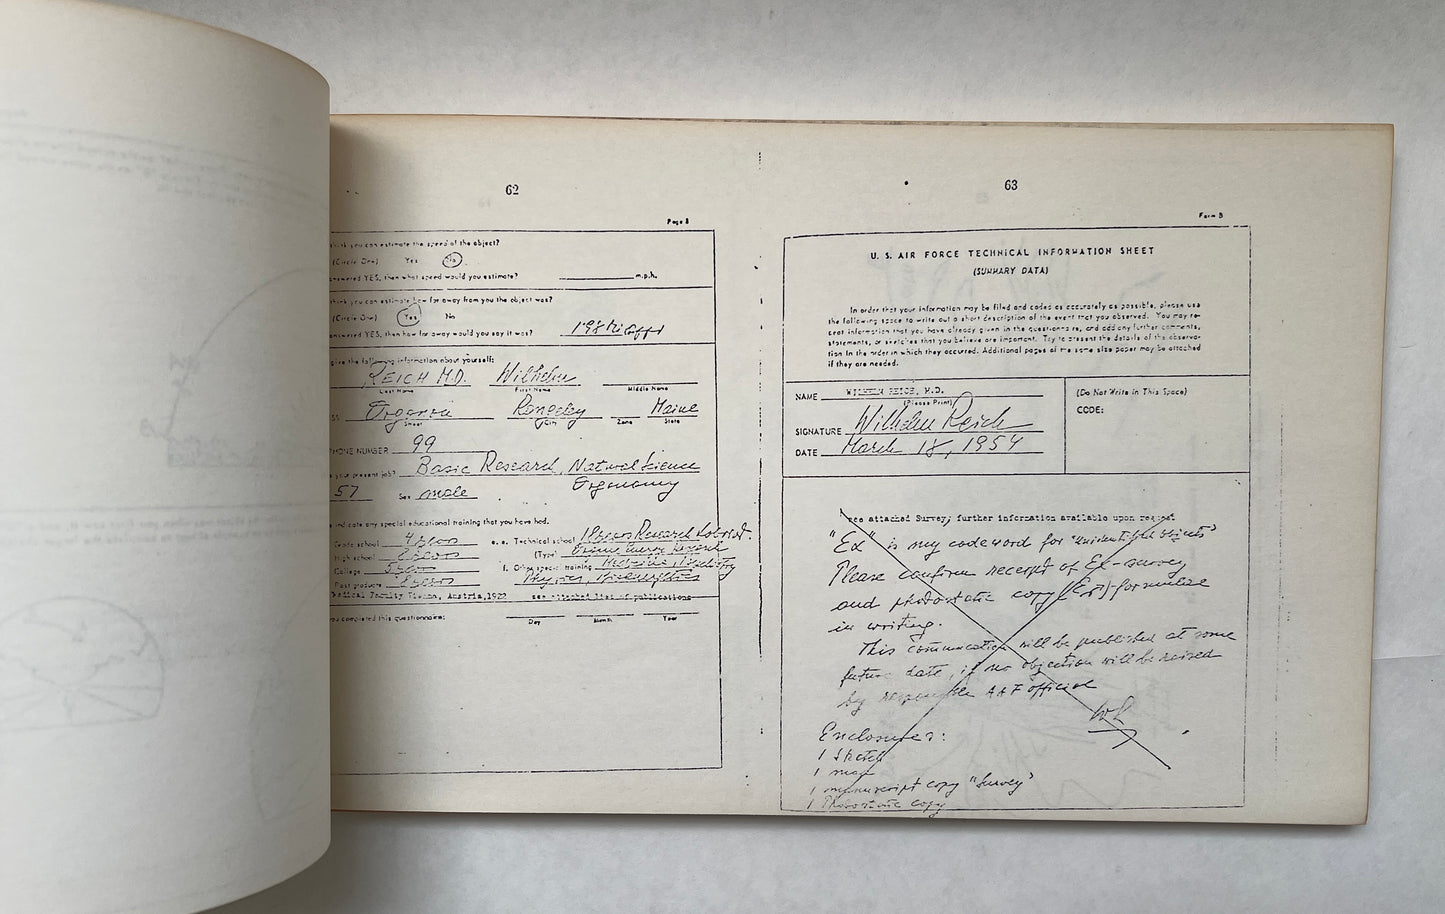 62
Page 8
think you can estimate the speed of the object?
(Circle One) Yes No
answered YES, then what speed would you estimate? m.p.h.
think you can estimate how far away from you the object was?
(Circle One) Yes No
answered YES, then how far away would you say it was?
give the following information about yourself:
REICH M.D. Wilhelm
Last Name First Name Middle Name
Orgonon Rangeley Maine
Street City Zone State
PHONE NUMBER 99
your present job? Basic Research, Natural Science
Orgonomy
57 Sex male
indicate any special educational training that you have had.
Grade school 4 years e. Technical school
High school 8 years (Type)
College 5 years f. Other special training Medicine,
Post graduate years
Medical Faculty Vienna, Austria, 1922 see attached list of publications
you completed this questionnaire:
Day Month Year
63
Form B
U. S. AIR FORCE TECHNICAL INFORMATION SHEET
(SUMMARY DATA)
In order that your information may be filed and coded as accurately as possible, please use
the following space to write out a short description of the event that you observed. You may re-
peat information that you have already given in the questionnaire, and add any further comments,
statements, or sketches that you believe are important. Try to present the details of the observa-
tion in the order in which they occurred. Additional pages of the same size paper may be attached
if they are needed.
NAME WILHELM REICH, M.D.
(Please Print)
SIGNATURE Wilhelm Reich
DATE March 18, 1954
(Do Not Write in This Space)
CODE:
see attached Survey; further information available upon request
"Ea" is my codeword for "unidentified objects"
Please confirm receipt of Ea-survey
and photostatic copy formulae
in writing.
This communication will be published at some
future date, if no objection will be raised
by responsible AAF official
WR
Enclosures:
1 Sketch
1 map
1 manuscript copy "Survey"
1 Photostatic copy